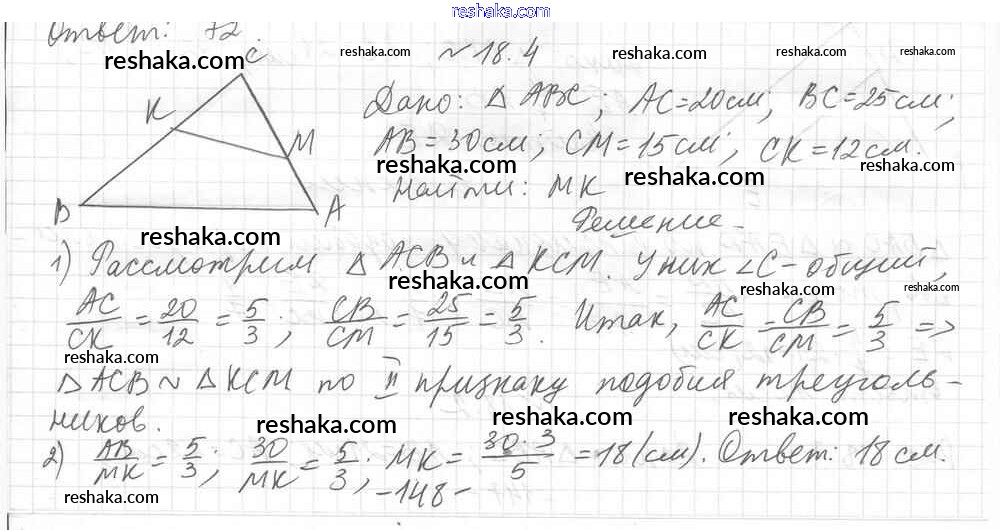 reshaka.com
Ответ: 72.
№ 18.4
reshaka.com
reshaka.com
reshaka.com
C
K
M
B
A
Дано: △ ABC; AC=20см; BC=25см;
reshaka.com
AB=30см; CM=15см; CK=12см.
reshaka.com
reshaka.com
Найти: MK
reshaka.com
Решение
1) Рассмотрим △ ACB и △ KCM. У них ∠C-общий,
reshaka.com
reshaka.com
reshaka.com
AC/CK = 20/12 = 5/3; CB/CM = 25/15 = 5/3. Итак, AC/CK = CB/CM = 5/3 =>
reshaka.com
reshaka.com
reshaka.com
△ ACB ~ △ KCM по II признаку подобия треуголь-
ников.
reshaka.com
reshaka.com
reshaka.com
2) AB/MK = 5/3; 30/MK = 5/3, MK = 30·3/5 = 18 (см). Ответ: 18 см.
reshaka.com
-148-